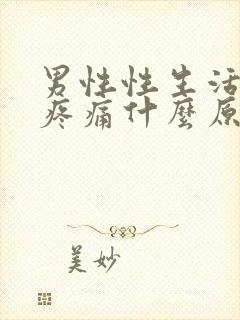 男性性生活
疼痛什麼原
美妙